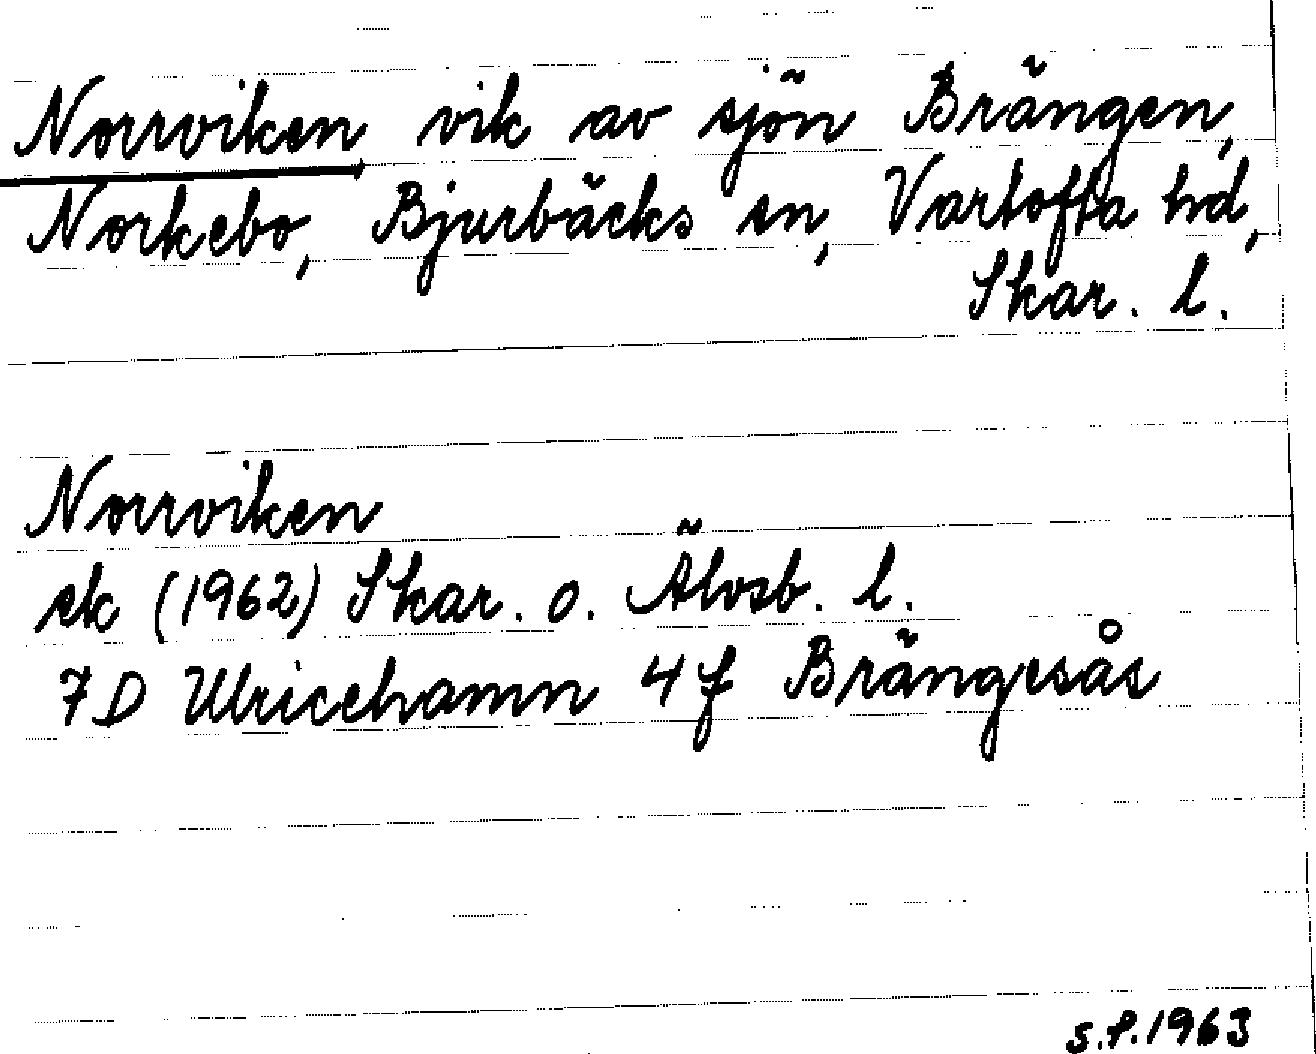 Norrviken, vik av sjön Brängen,
Norkebo, Bjurbäcks sn, Vartofta hd,
Skar. l.
Norrviken
ek (1962) Skar. o. Älvsb. l.
7D Ulricehamn 4f Brängesås
S.P. 1963